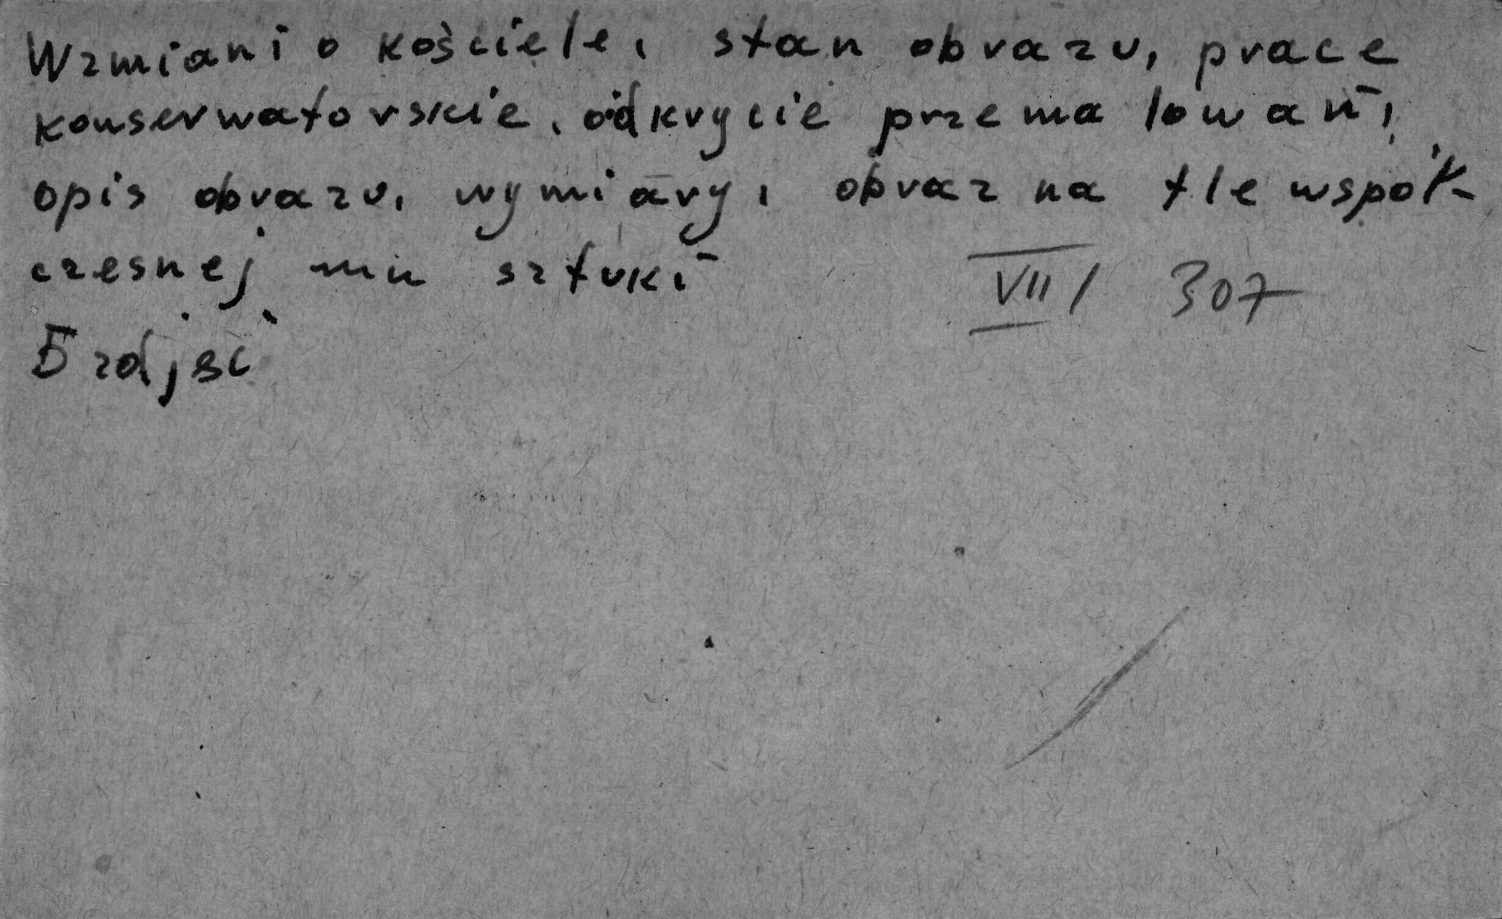 Wzmiani o kościele, stan obrazu, prace
konserwatorskie, odkrycie przemalowań,
opis obrazu, wymiary, obraz na tle współ-
czesnej mu sztuki
VII/ 307
5 zdjęć